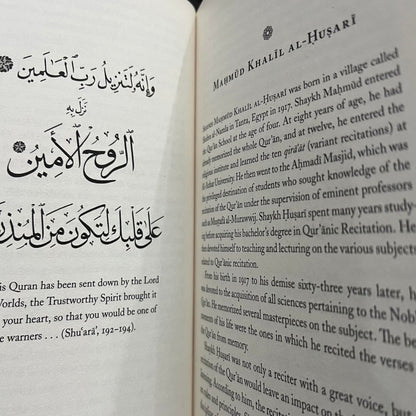 وَإِنَّهُ لَتَنزِيلُ رَبِّ الْعَالَمِينَ
نَزَلَ بِهِ
الرُّوحُ الْأَمِينُ
عَلَى قَلْبِكَ لِتَكُونَ مِنَ الْمُنذِر
is Quran has been sent down by the Lord
Worlds, the Trustworthy Spirit brought it
your heart, so that you would be one of
e warners . . . (Shuʿarāʾ, 192–194).
Maḥmūd Khalīl al-Ḥuṣarī
Khalīl al-Ḥuṣarī was born in a village called
al-Namla in Tanta, Egypt in 1917. Shaykh Maḥmūd entered
Qurʾān School at the age of four. At eight years of age, he had
memorized the whole Qurʾān, and at twelve, he entered the
religious institute and learned the ten qirāʾāt (variant recitations) at
University. He then went to the Aḥmadī Masjid, which was
privileged destination of students who sought knowledge of the
of the Qurʾān under the supervision of eminent professors
as Muṣṭafā al-Murawwij. Shaykh Ḥuṣarī spent many years study-
before acquiring his bachelor's degree in Qurʾānic Recitation. He
devoted himself to teaching and lecturing on the various subjects
Qurʾānic recitation.
From his birth in 1917 to his demise sixty-three years later, he
was devoted to the acquisition of all sciences pertaining to the Nobl
Qurʾān. He memorized several masterpieces on the subject. The be
moments of his life were the ones in which he recited the verses
from memory.
Shaykh Ḥuṣarī was not only a reciter with a great voice, bu
recitation of the Qurʾān would leave an impact on
According to him, the
rules and principles,